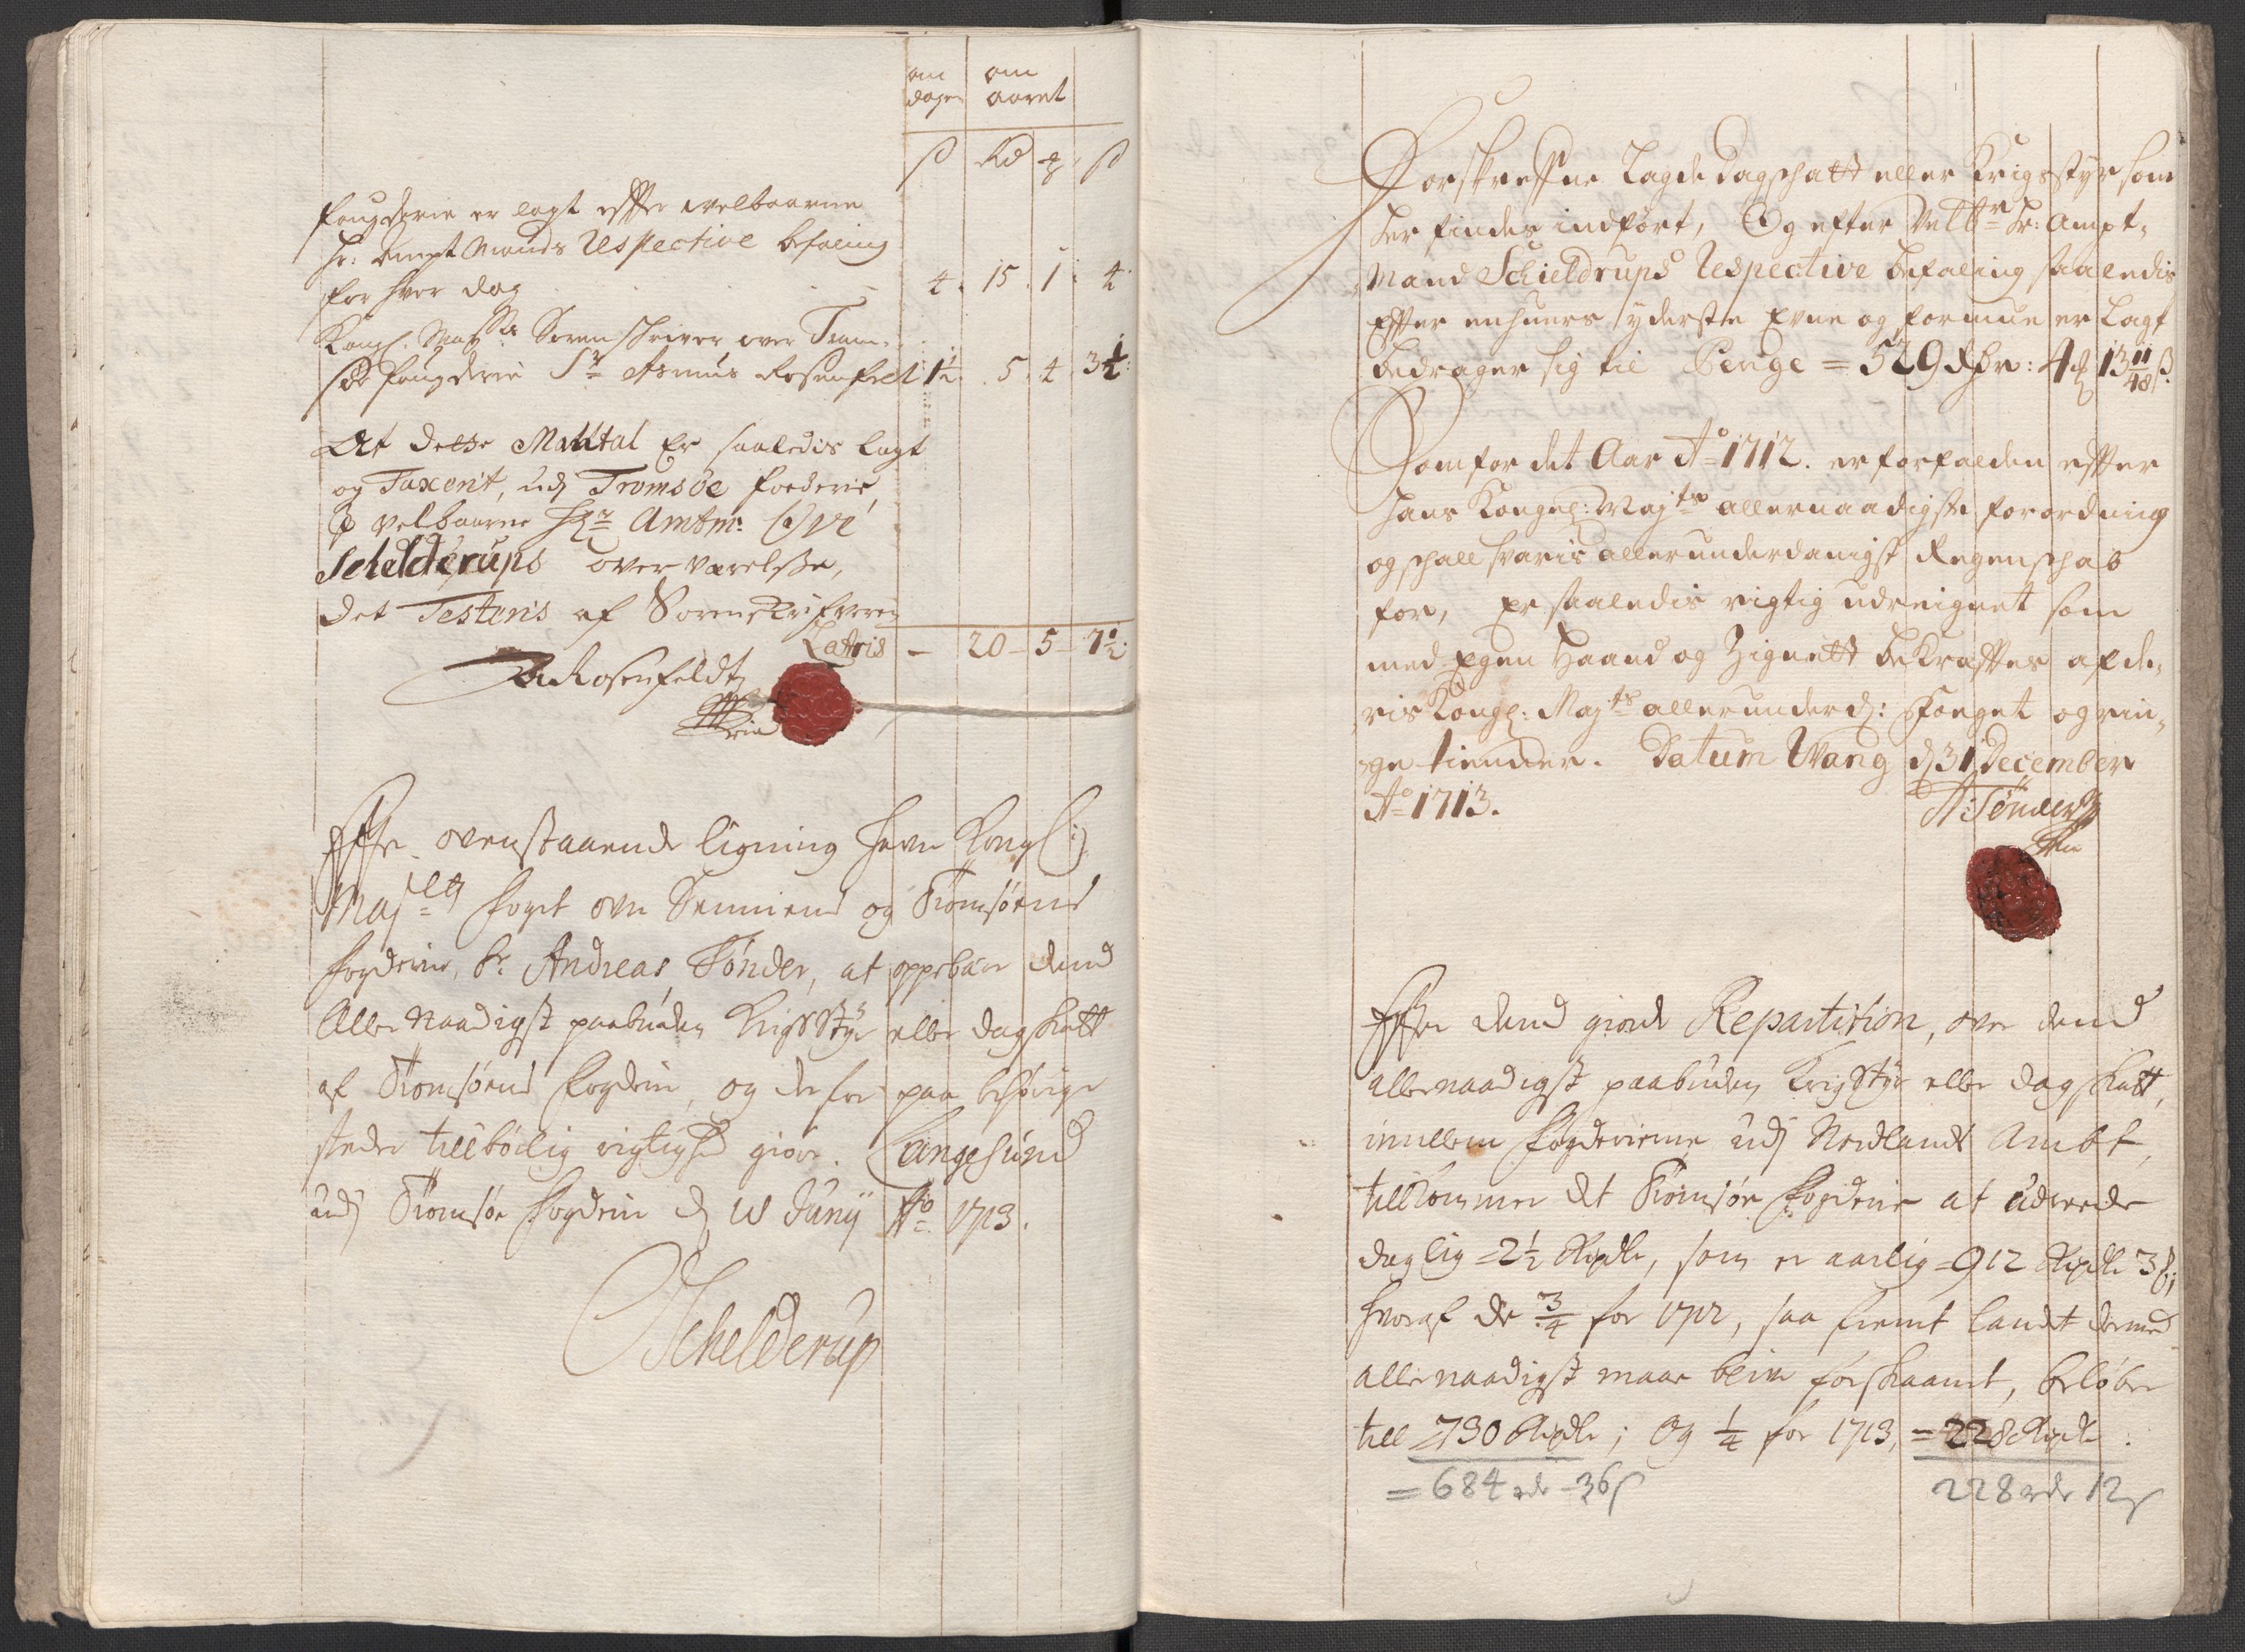 om dagen | om aaret
ß | Rd | ₰ | ß
fougderie er lagt effter welbaarne
Hr: Ampt Mands Respective befaling
for hver dag 4. 15. 1. 4.
Kongl. Mayts Sorenskriver over Trom-
søe fougderie Sr Asmus Rosenfeldt 1½. 5. 4. 3¼:
At dette Mantal Er saaledis lagt
og Taxerit, udj Tromsøe foederie,
velbaarne Hr Amtm: Ove
Schelderups over værelse,
Det Testeris af Sorenskrifveren
Lateris – 20 – 5 – 7½.
A Rosenfeldt
Effter ovenstaaende ligning haver Kongl:
Majts foget over Senniens og Tromsøens
fogderier, Sr. Andreas Tønder, at oppebære dend
Aller Naadigst paabudne Krigsstyr eller dagskatt
af Tromsøens fogderie, og derfor paa behørige
steder tilbørlig rigtighed giøre. Langesund
udj Tromsøe fogderie d. 10 Junij Ao 1713.
OSchelderup
Forskrefne Lagde Dagschatt eller Krigsstyr som
her findes indført, Og efter Velbr Hr: Ampt-
Mand Schieldrups Respective befaling saaledis
Effter enhuers yderste Evne og formue er Lagt
bedrager sig til Penge = 529 Rdr: 4 ₰ 13 11/48 ß.
Som for det Aar Ao 1712. er forfalden effter
Hans Kongel: Mayts allernaadigste forordning
og schall svaris allerunderdanigst Regenschab
for, Er saaledis rigtig udreignet som
med Egen Haand og Zignett bekrafftes af de-
ris Kongl: Mayts allerunderd: Foeget og rin-
ge tienner. Datum Wang d 31 December
Ao 1713.
A: Tønder
Effter dend giorde Repartition, over dend
allernaadigst paabudne Krigsstyr eller dagskatt,
imellem fogderierne udj Nordlands Ambt,
tillkommer det Tromsøe fogderie at udreede
daglig = 2½ Rixdlr, som er aarlig = 912 Rixdlr 3 ₰;
hvoraf de ¾ for 1712, saa fremt landet dermed
allernaadigst maae blive forskaanet, beløber
till 730 Rixdlr; Og ¼ for 1713, = 228 Rixdlr.
= 684 rdr – 36 ß 228 rdr 12 ß